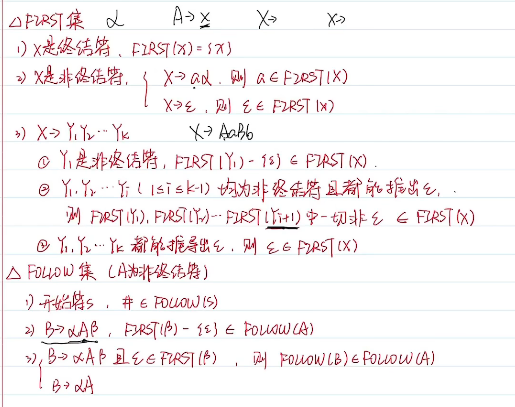 △FIRST集 α A→x X→ X→
1) X是终结符、FIRST(X)={X}
2) X是非终结符、{ X→aα、则 a∈FIRST(X)
X→ε、则 ε∈FIRST(X)
3) X→Y₁Y₂…Yₖ X→AaBb
① Y₁是非终结符,FIRST(Y₁)-{ε}∈FIRST(X).
② Y₁,Y₂…Yi (1≤i≤k-1) 均为非终结符且都能推出ε,.
则 FIRST(Y₁),FIRST(Y₂)…FIRST(Yi+1)中一切非ε ∈FIRST(X)
③ Y₁,Y₂…Yₖ都能推导出ε、则 ε∈FIRST(X)
△ FOLLOW集 (A为非终结符)
1) 开始符S,#∈FOLLOW(S)
2) B→αAβ,FIRST(β)-{ε}∈FOLLOW(A)
3) { B→αAβ且ε∈FIRST(β),则 FOLLOW(B)∈FOLLOW(A)
B→αA